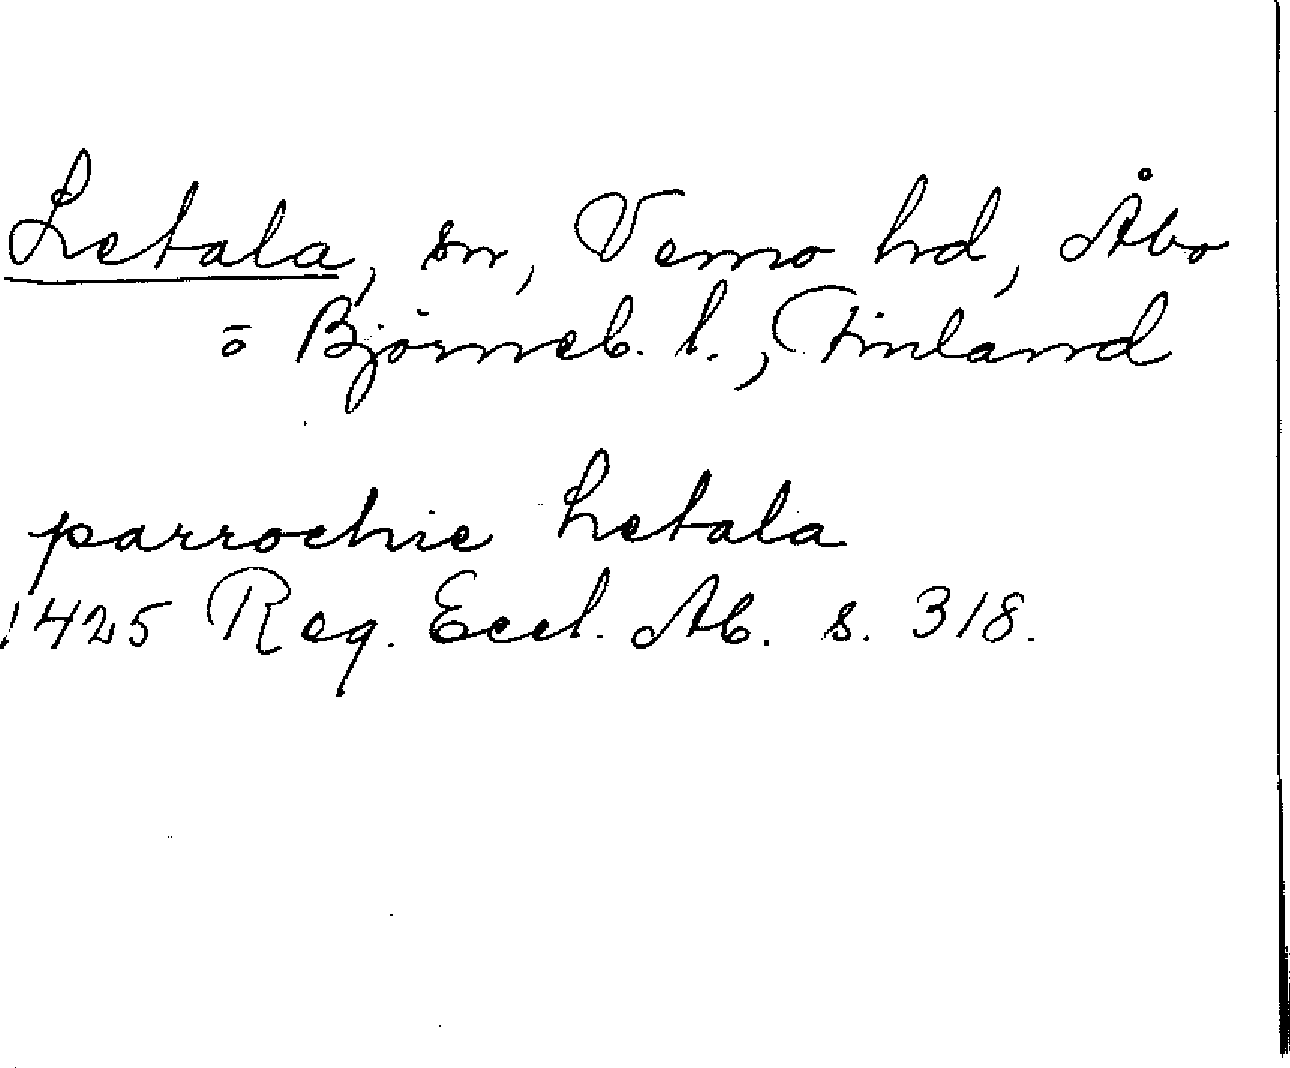 Letala, sn, Vemo hd, Åbo
o Björneb. l., Finland
parrochie Letala
1425 Reg. Eccl. Ab. s. 318.